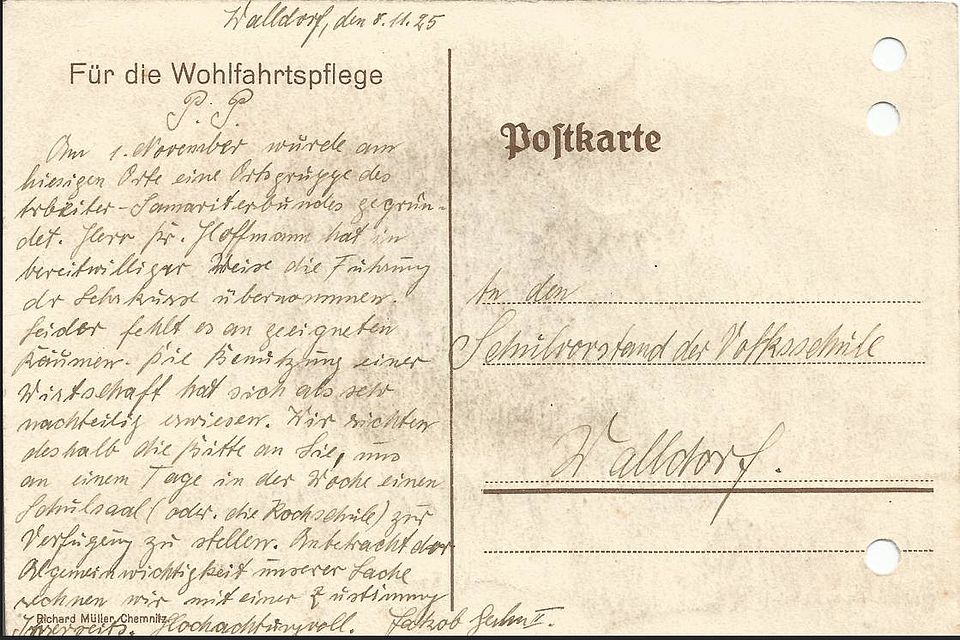 Walldorf, den 8.11.25
Für die Wohlfahrtspflege
P. P.
Am 1. November wurde am
hiesigen Orte eine Ortsgruppe des
Arbeiter-Samariterbundes gegrün-
det. Herr Dr. Hoffmann hat in
bereitwilliger Weise die Führung
der Lehrkurse übernommen.
Leider fehlt es an geeigneten
Räumen. Die Benützung einer
Wirtschaft hat sich als sehr
nachteilig erwiesen. Wir richten
deshalb die Bitte an Sie, uns
an einem Tage in der Woche einen
Schulsaal (oder die Kochschule) zur
Verfügung zu stellen. Anbetracht der
Algemeinwichtigkeit unserer Sache
rechnen wir mit einer Zustimmung
Ihrerseits. Hochachtungvoll. Jakob
Richard Müller, Chemnitz.
Postkarte
An den
Schulvorstand der Volksschule
Walldorf.